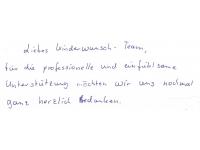 Liebes Kinderwunsch-Team,
für die professionelle und einfühlsame
Unterstützung möchten wir uns nochmal
ganz herzlich bedanken.